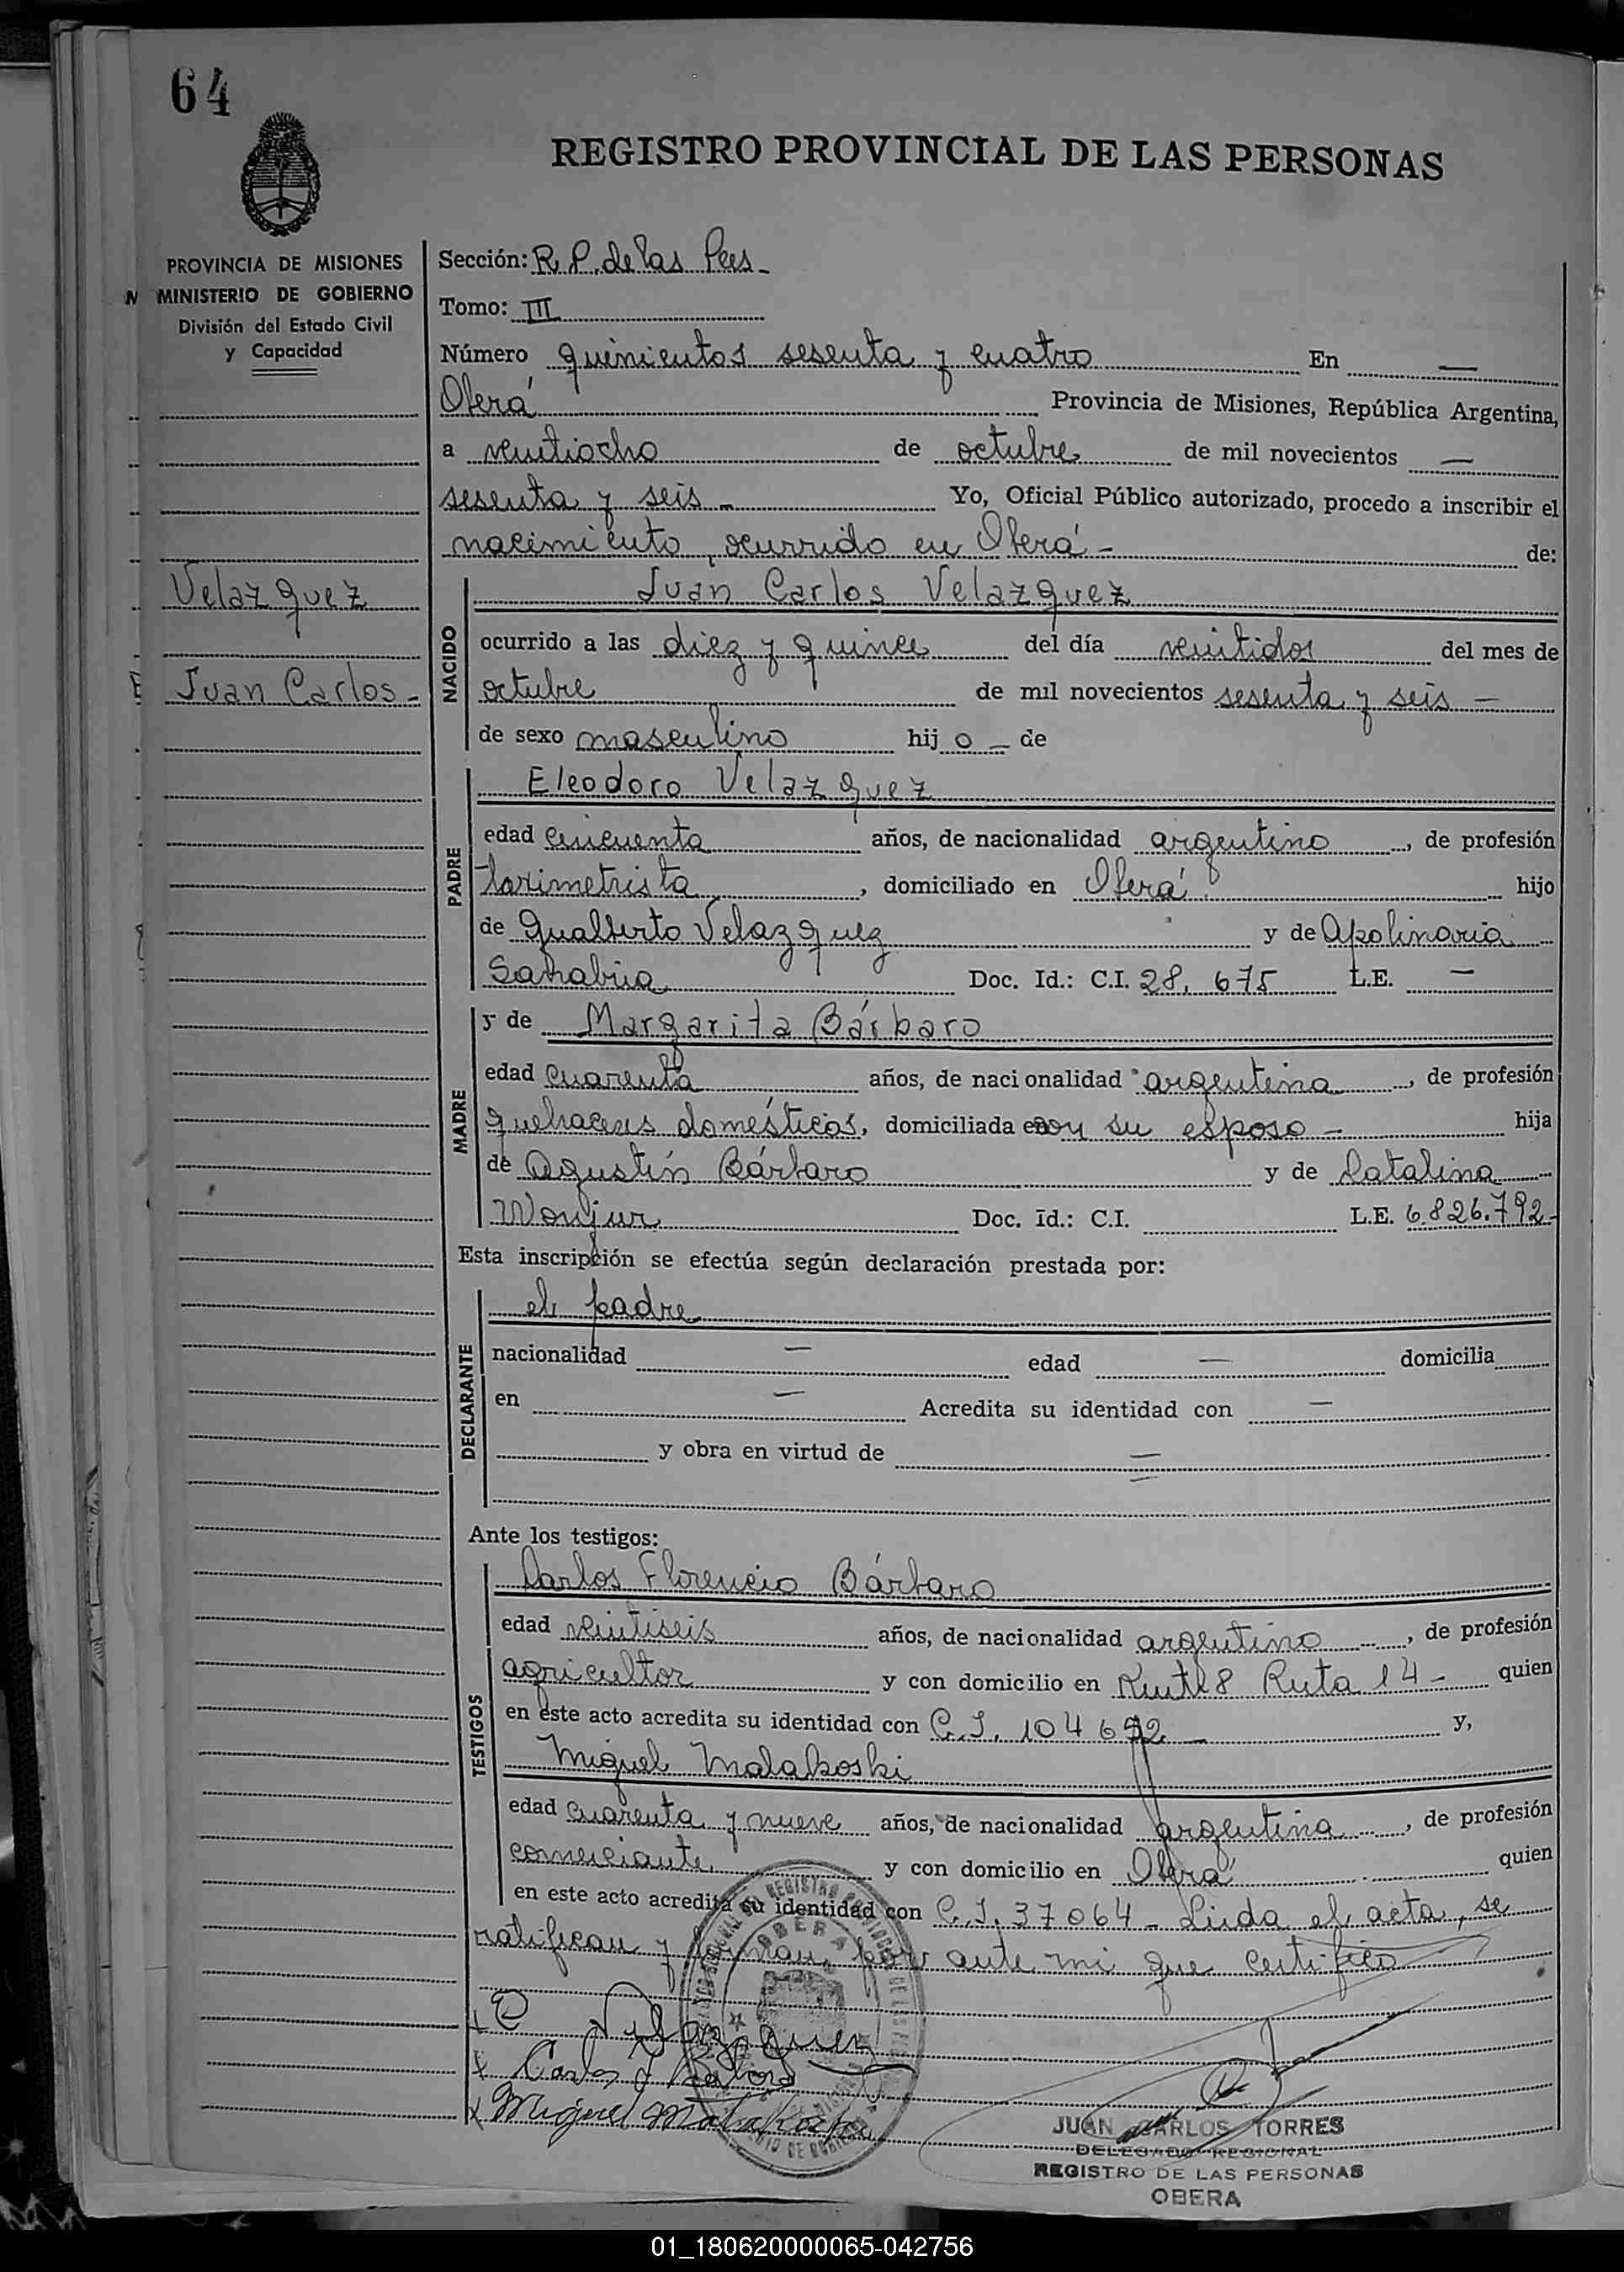 64
REGISTRO PROVINCIAL DE LAS PERSONAS
PROVINCIA DE MISIONES
MINISTERIO DE GOBIERNO
División del Estado Civil
y Capacidad
Velazquez
Juan Carlos -
Sección: R. P. de las Pers -
Tomo: III
Número quinientos sesenta y cuatro En —
Oberá Provincia de Misiones, República Argentina,
a veintiocho de octubre de mil novecientos —
sesenta y seis - Yo, Oficial Público autorizado, procedo a inscribir el
nacimiento, ocurrido en Oberá - de:
NACIDO
Juan Carlos Velazquez
ocurrido a las diez y quince del día veintidos del mes de
octubre de mil novecientos sesenta y seis —
de sexo masculino hij o — de
PADRE
Eleodoro Velazquez
edad cincuenta años, de nacionalidad argentino, de profesión
taximetrista, domiciliado en Oberá hijo
de Gualberto Velazquez y de Apolinaria
Sanabria Doc. Id.: C.I. 28.675 L.E. —
MADRE
y de Margarita Bárbaro
edad cuarenta años, de nacionalidad argentina, de profesión
quehaceres domésticos, domiciliada con su esposo — hija
de Agustín Bárbaro y de Catalina
Doc. Id.: C.I. L.E. 6.826.792-
Esta inscripción se efectúa según declaración prestada por:
DECLARANTE
el padre
nacionalidad — edad — domicilia
en — Acredita su identidad con —
y obra en virtud de —
Ante los testigos:
TESTIGOS
Carlos Florencio Bárbaro
edad veintiseis años, de nacionalidad argentino, de profesión
agricultor y con domicilio en 8 Ruta 14 - quien
en este acto acredita su identidad con C.I. 104 692 — y,
Miguel Malakoski
edad cuarenta y nueve años, de nacionalidad argentina, de profesión
comerciante y con domicilio en Oberá quien
en este acto acredita su identidad con C.I. 37064 - Leida el acta, se
ratifican y firman por ante mi que certifico
E Velazquez
Carlos F Bárbaro
Miguel Malakoski
JUAN CARLOS TORRES
DELEGADO REGIONAL
REGISTRO DE LAS PERSONAS
OBERA
01_180620000065-042756